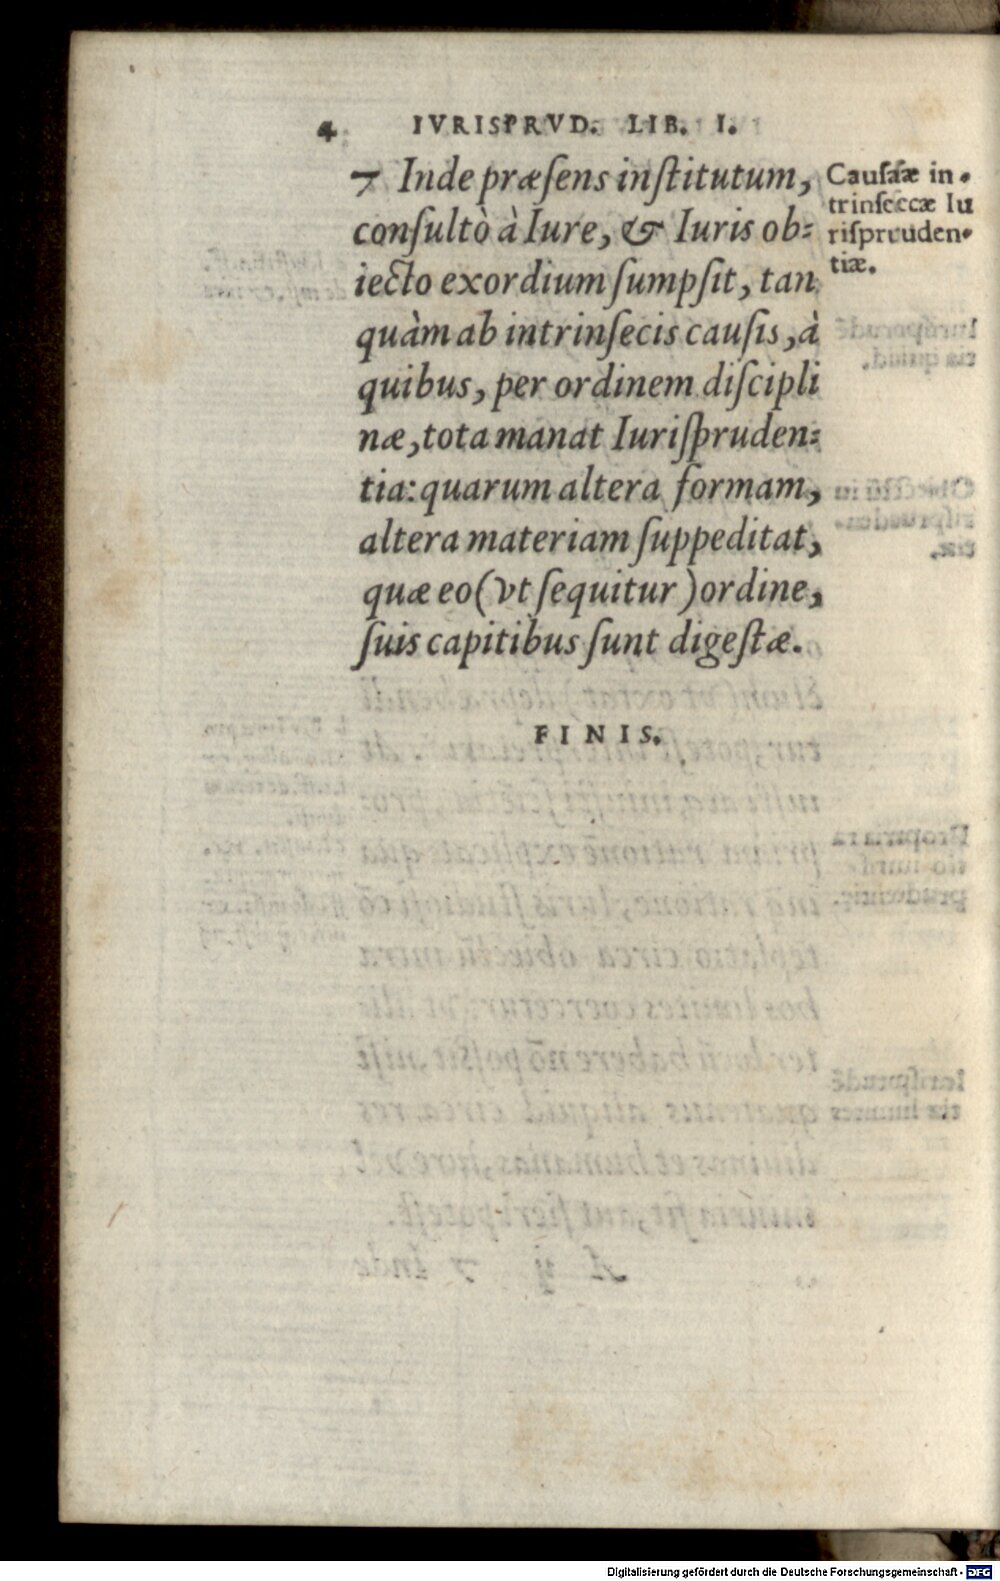 4 IVRISPRVD. LIB. I.
7 Inde præſens inſtitutum,
conſultò à Iure, & Iuris ob=
iecto exordium ſumpſit, tan
quàm ab intrinſecis cauſis, à
quibus, per ordinem diſcipli
næ, tota manat Iuriſpruden=
tia: quarum altera formam,
altera materiam ſuppeditat,
quæ eo (vt ſequitur) ordine,
ſuis capitibus ſunt digeſtæ.
Cauſæ in•
trinſecæ Iu
riſpruden•
tiæ.
FINIS.
Digitalisierung gefördert durch die Deutsche Forschungsgemeinschaft - DFG